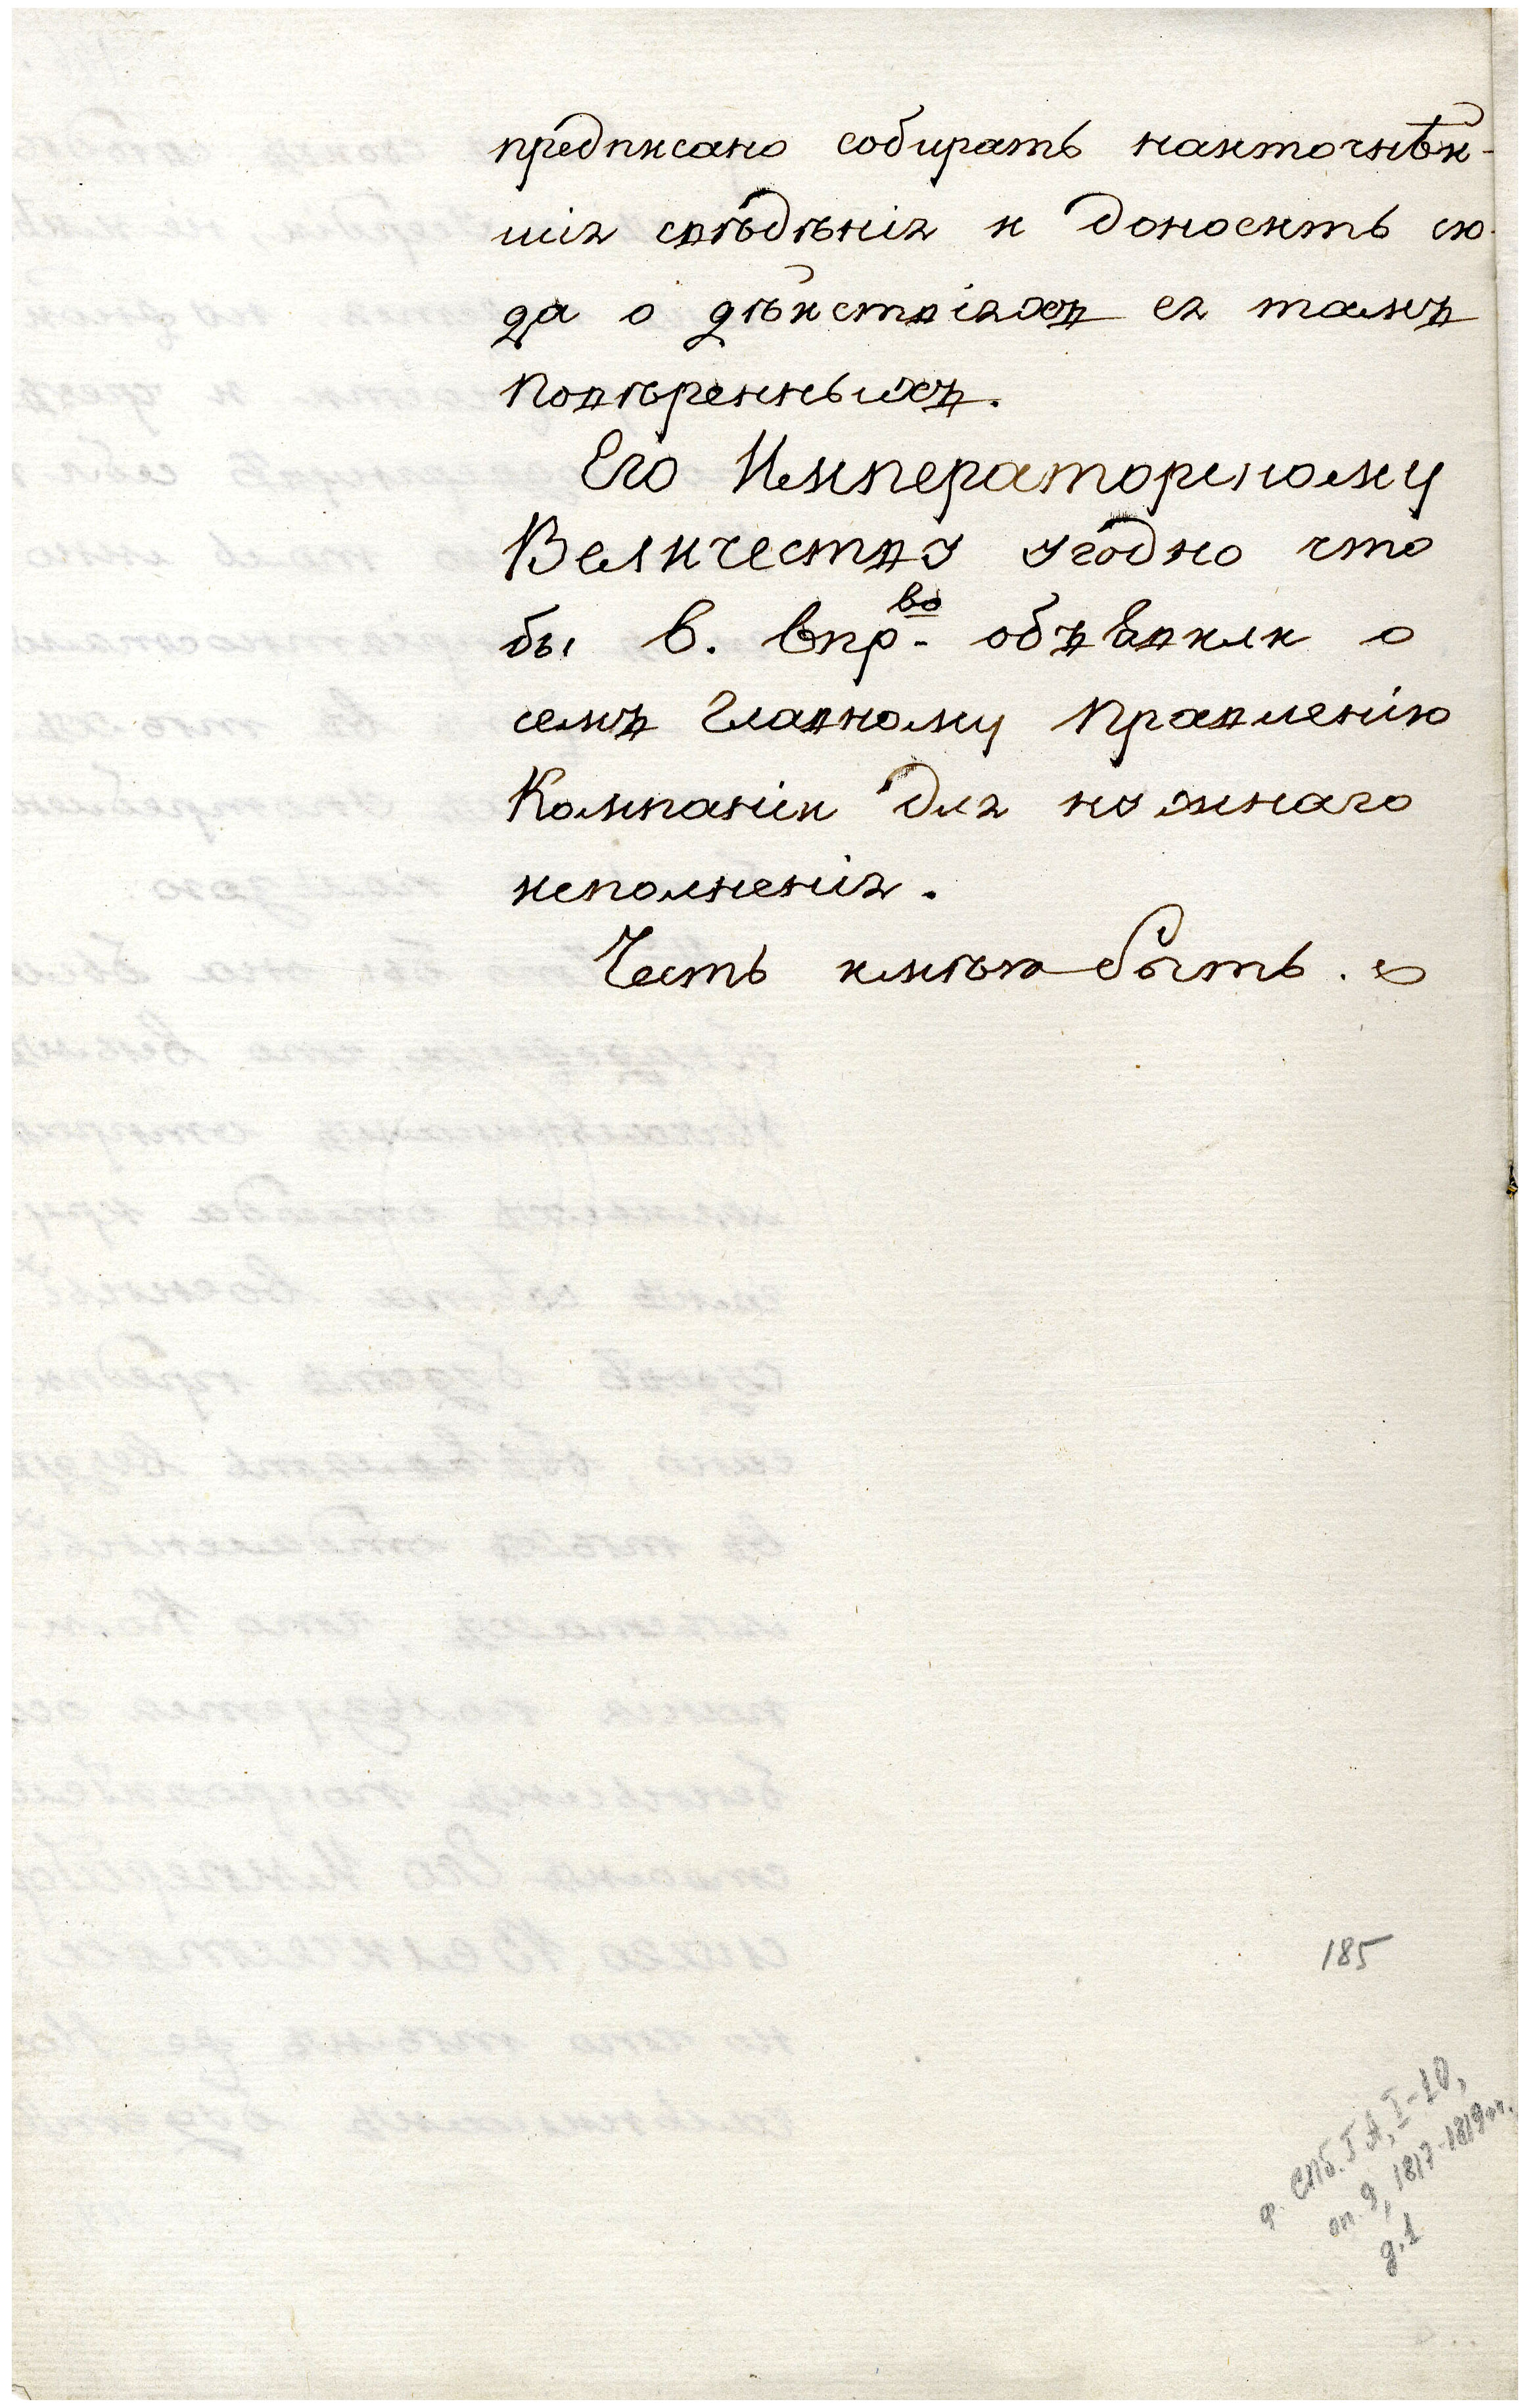 предписано собирать наиточнѣй-
шія свѣдѣнія и доносить сю-
да о дѣйствіяхъ ея тамъ
Повѣренныхъ.
Его Императорскому
Величеству угодно что
бы В. Впр-во объявили о
семъ Главному Правленію
Компаніи для нужнаго
исполненія.
Честь имѣю быть.
185
ф. СПб. ГА, I-10,
оп. 9, 1817-1819 гг.
д. 1